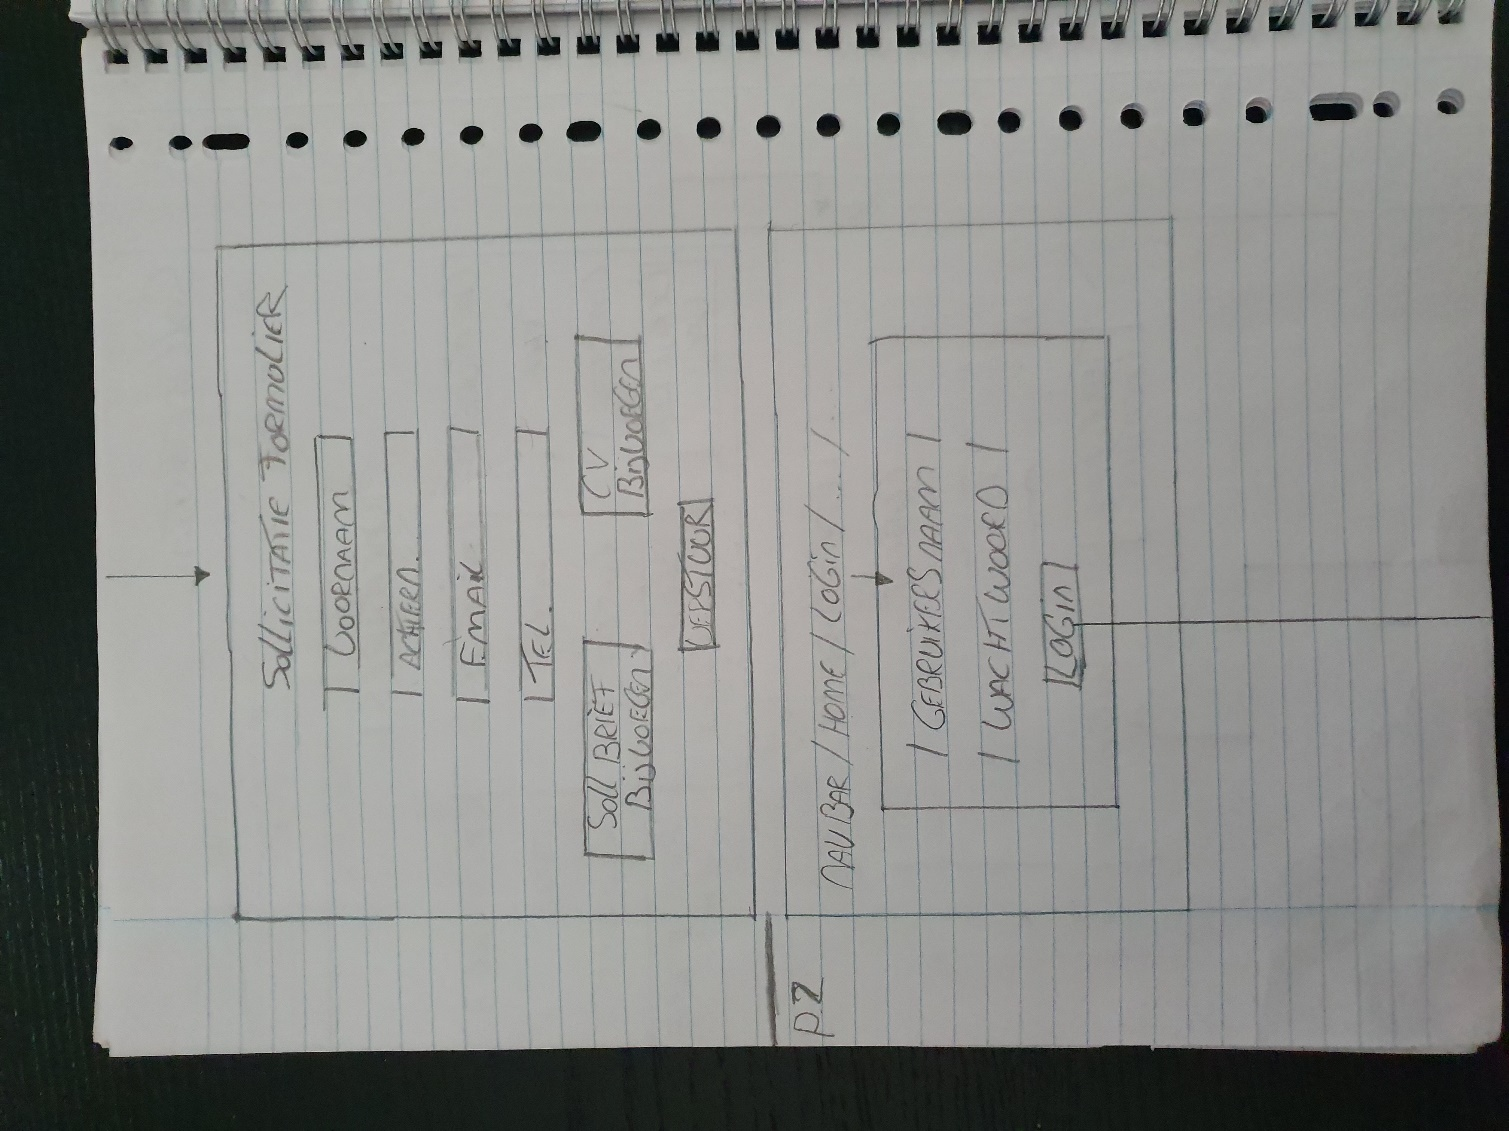 SOLLICITATIE FORMULIER
VOORNAAM
ACHTERN.
EMAIL
TEL.
Soll BRIEF
BIJVOEGEN
CV
BIJVOEGEN
VERSTUUR
P2
NAVBAR / HOME / LOGIN / .... / ..
| GEBRUIKERSNAAM |
| WACHTWOORD |
LOGIN